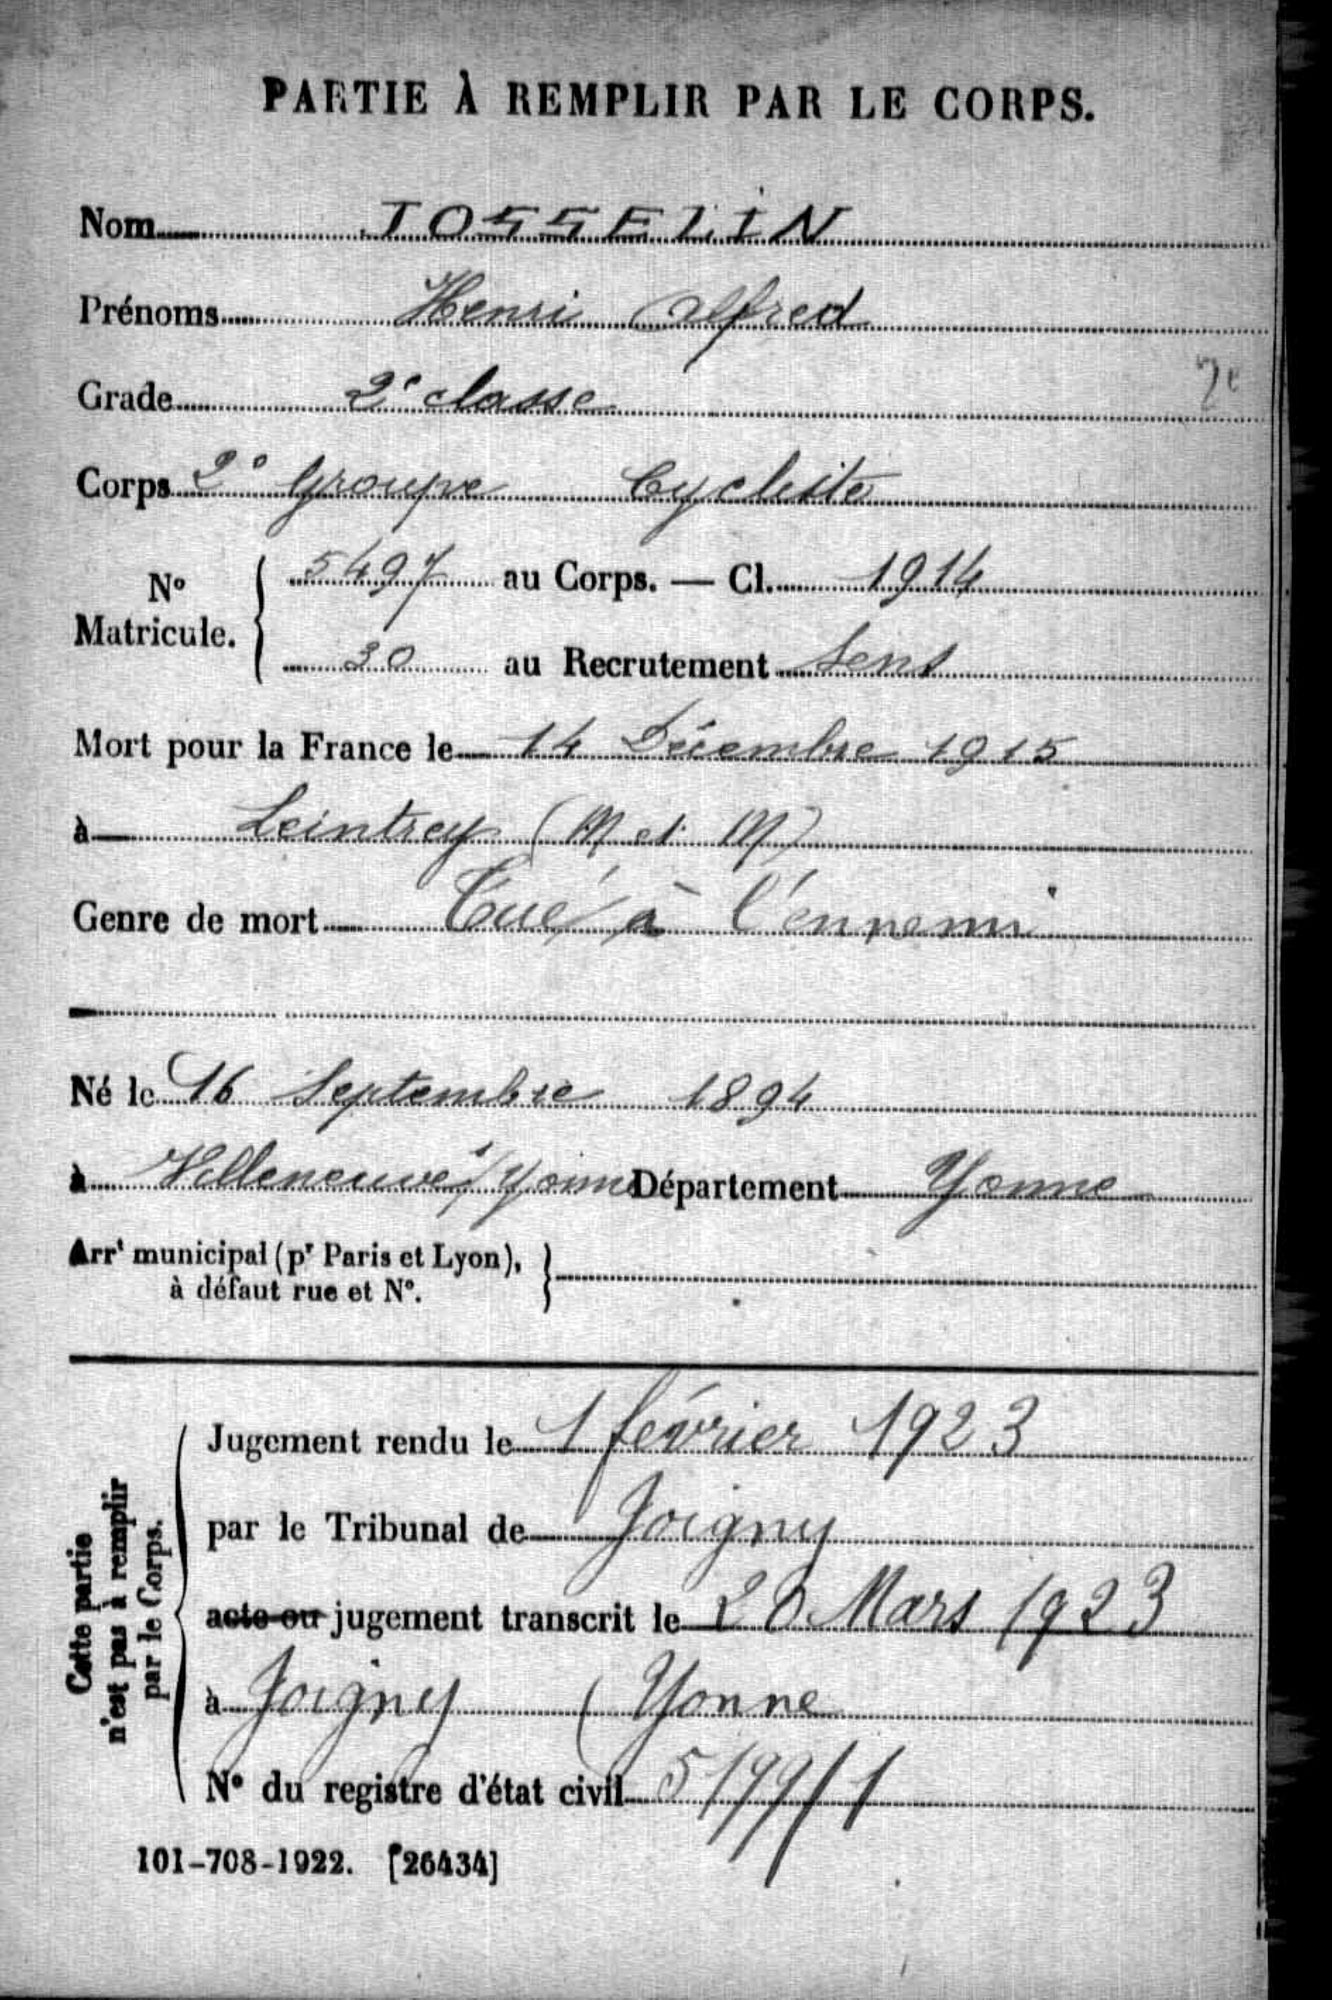 PARTIE À REMPLIR PAR LE CORPS.
Nom JOSSELIN
Prénoms Henri Alfred
Grade 2e classe
Corps 2e Groupe Cycliste
No Matricule. { 5497 au Corps. — Cl. 1914
30 au Recrutement Sens
Mort pour la France le 14 Décembre 1915
à Leintrey (M et M)
Genre de mort Tué à l'ennemi
Né le 16 Septembre 1894
à Villeneuve s/ Yonne Département Yonne
Arrt municipal (pr Paris et Lyon),
à défaut rue et No.
Cette partie
n'est pas à remplir
par le Corps.
Jugement rendu le 1 février 1923
par le Tribunal de Joigny
acte ou jugement transcrit le 20 Mars 1923
à Joigny (Yonne
No du registre d'état civil
101-708-1922. [26434]